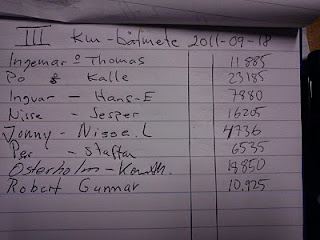 III Km-båtmete 2011-09-18
Ingemar o Thomas 11885
Po & Kalle 23185
Ingvar - Hans-E 7880
Nisse - Jesper 16205
Jonny - Nisse.L 4736
Per - Staffan 6535
Österholm - 18850
Robert Gunnar 10,925